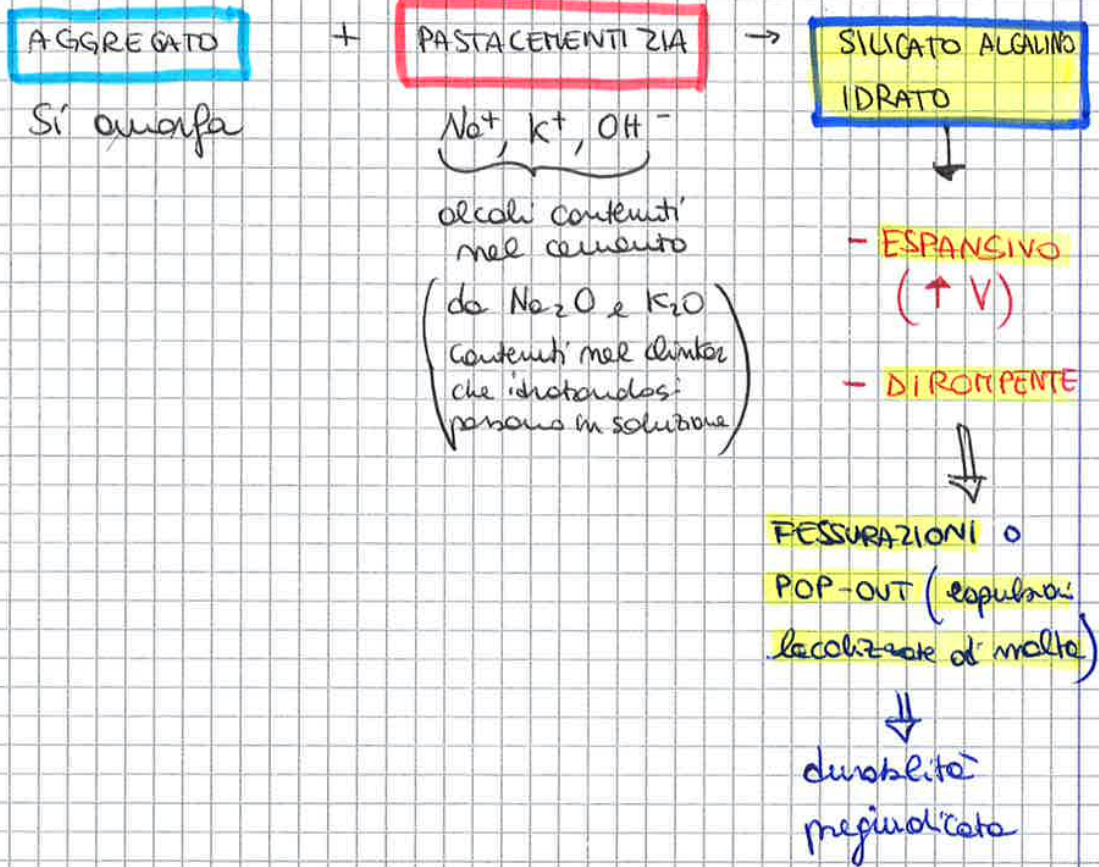 AGGREGATO + PASTACEMENTIZIA → SILICATO ALCALINO
IDRATO
Si amorfa
Na⁺, K⁺, OH⁻
alcali contenuti
nel cemento
(da Na₂O e K₂O
contenuti nel clinker
che idratandosi
passano in soluzione)
- ESPANSIVO
(↑ V)
- DIROMPENTE
⇓
FESSURAZIONI o
POP-OUT (espulsioni
localizzate di malta)
⇓
durabilità
pregiudicata